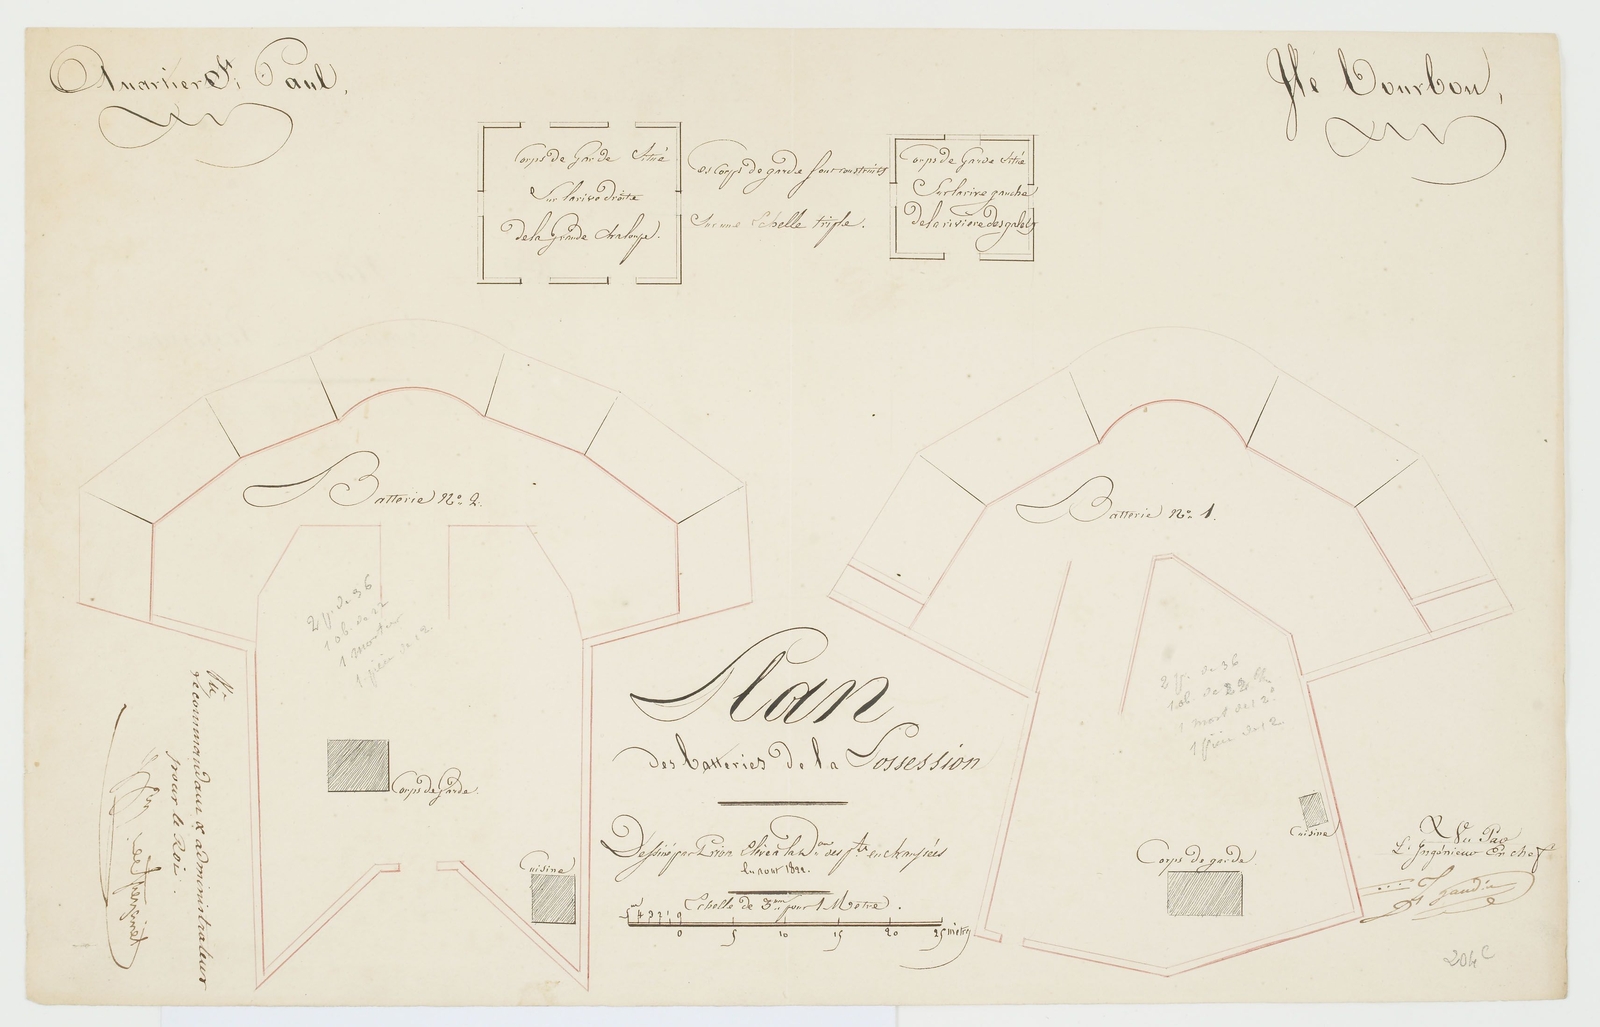 Quartier St Paul.
Ile Bourbon,
Corps de Garde Situé
Sur la rive droite
de la Grande Chaloupe.
Les Corps de garde sont construits
Sur une Echelle triple.
Corps de Garde Situé
Sur la rive gauche
de la rivière des galets
Batterie No. 2.
Batterie No. 1.
2 p. de 36
1 ob. de 22
1 mortier
1 pièce de 12
2 p. de 36
1 ob. de 22
1 mort de 12
1 pièce de 12
Corps de Garde.
Cuisine
Plan
des batteries de la Possession
Dessiné par
Elève
des pts et chaussées
En aout
Echelle de 3mm pour 1 Mètre.
0 5 10 15 20 25 mètres
Corps de garde
Cuisine
Vu,
le commandant & administrateur
pour le Roi.
Vu Par
L'Ingénieur En chef
204 C